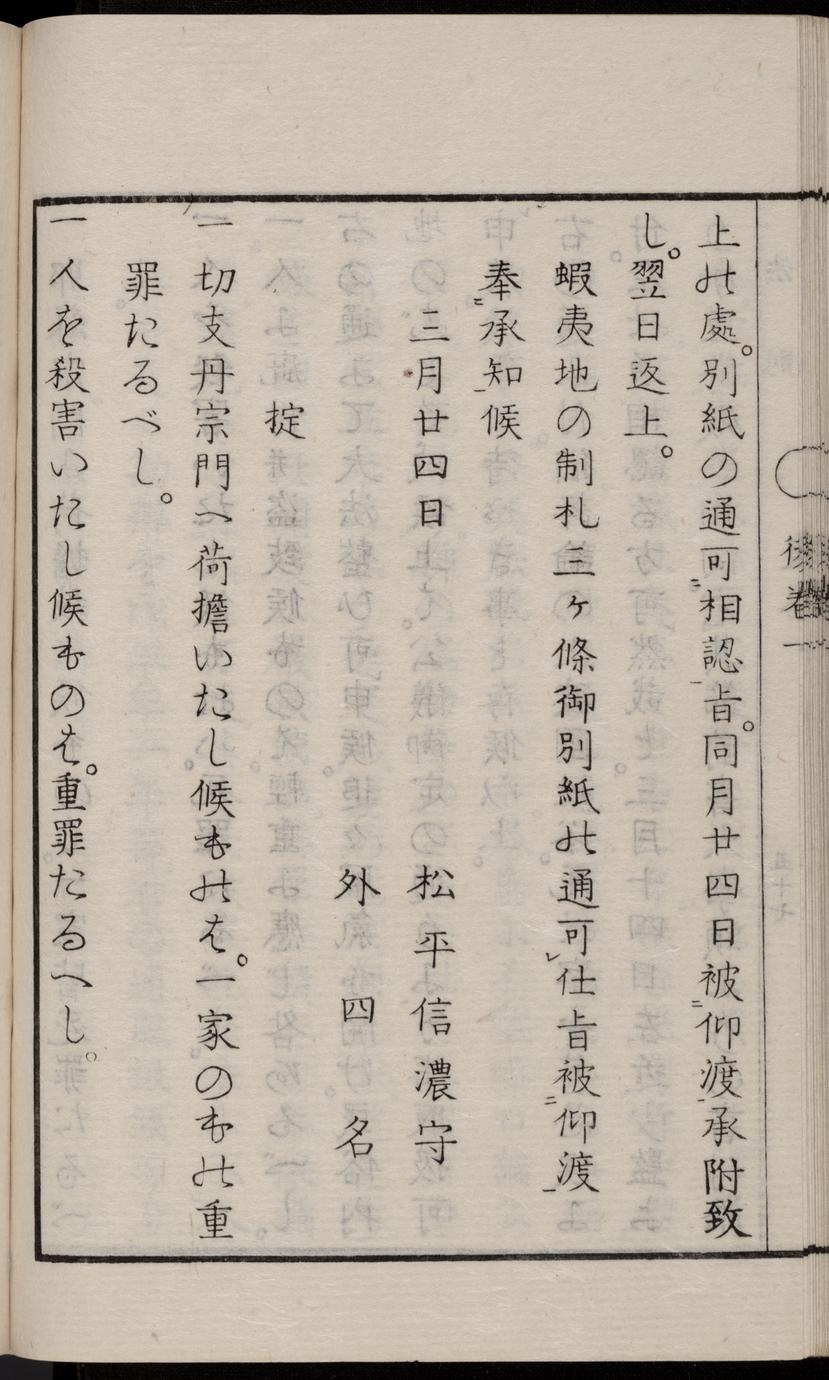 上の處。別紙の通可㆓相認㆒旨。同月廿四日被㆓仰渡㆒承附致
し。翌日返上。
蝦夷地の制札三ヶ條御別紙の通可㆑仕旨被㆓仰渡㆒
奉㆓承知㆒候
三月廿四日　松平信濃守
外四名
掟
一切支丹宗門へ荷擔いたし候ものは。一家のもの重
罪たるべし。
一人を殺害いたし候ものは。重罪たるへし。